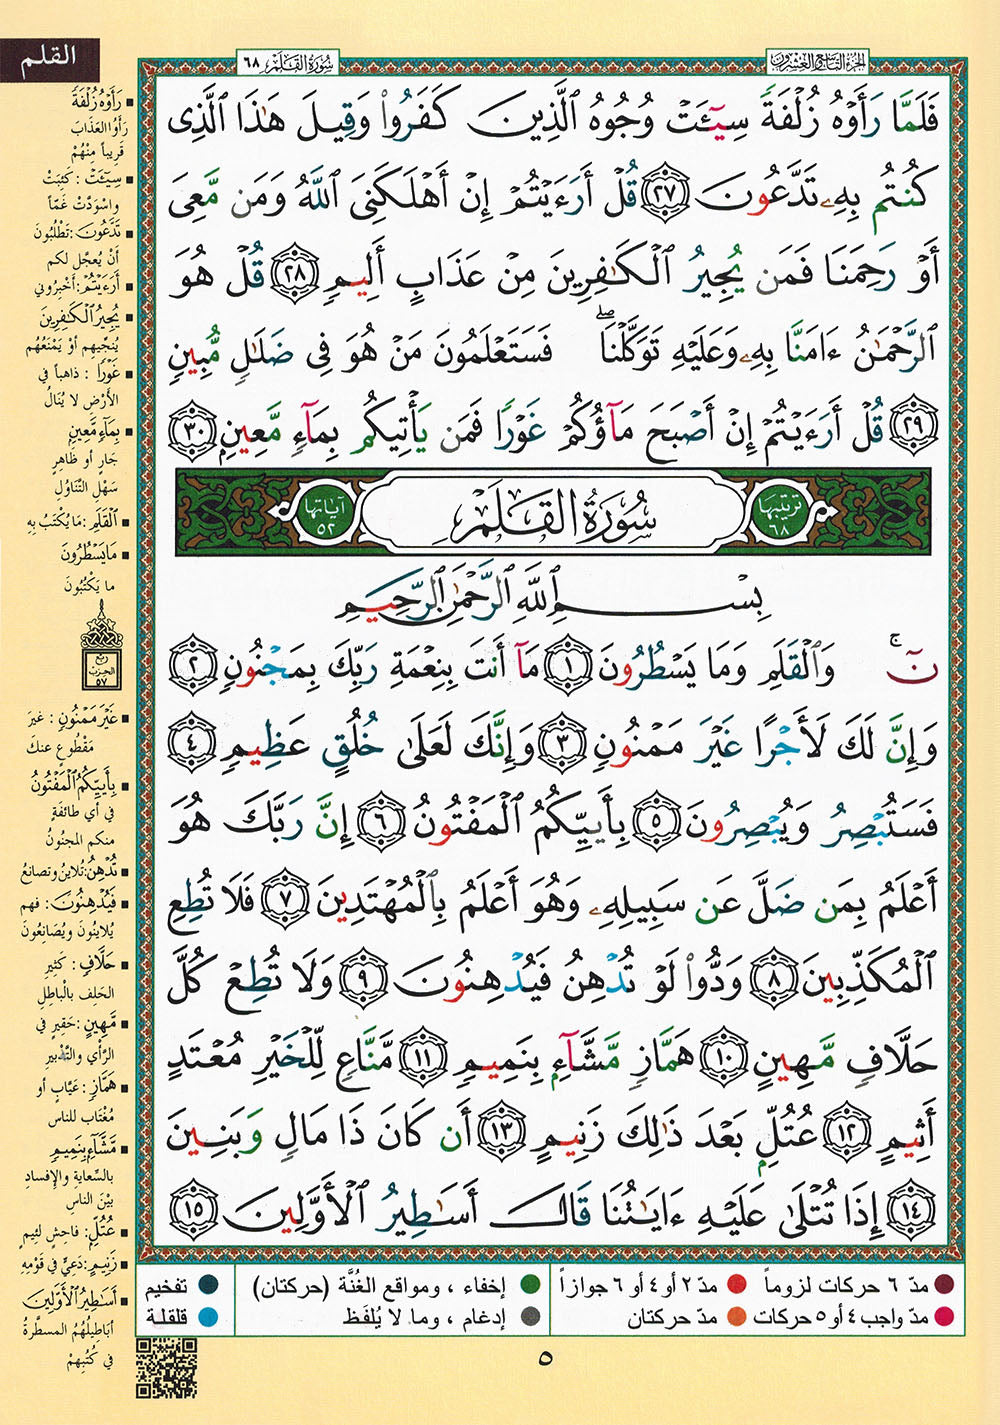 الجزء التاسع والعشرون
سورة القلم ٦٨
القلم
فَلَمَّا رَأَوْهُ زُلْفَةً سِيٓـَٔتْ وُجُوهُ ٱلَّذِينَ كَفَرُوا۟ وَقِيلَ هَٰذَا ٱلَّذِى
كُنتُم بِهِۦ تَدَّعُونَ ٢٧ قُلْ أَرَءَيْتُمْ إِنْ أَهْلَكَنِىَ ٱللَّهُ وَمَن مَّعِىَ
أَوْ رَحِمَنَا فَمَن يُجِيرُ ٱلْكَٰفِرِينَ مِنْ عَذَابٍ أَلِيمٍ ٢٨ قُلْ هُوَ
ٱلرَّحْمَٰنُ ءَامَنَّا بِهِۦ وَعَلَيْهِ تَوَكَّلْنَا ۖ فَسَتَعْلَمُونَ مَنْ هُوَ فِى ضَلَٰلٍ مُّبِينٍ
٢٩ قُلْ أَرَءَيْتُمْ إِنْ أَصْبَحَ مَآؤُكُمْ غَوْرًا فَمَن يَأْتِيكُم بِمَآءٍ مَّعِينٍۭ ٣٠
ترتيبها ٦٨
سُورَةُ الْقَلَمِ
آياتها ٥٢
بِسْمِ ٱللَّهِ ٱلرَّحْمَٰنِ ٱلرَّحِيمِ
نٓ ۚ وَٱلْقَلَمِ وَمَا يَسْطُرُونَ ١ مَآ أَنتَ بِنِعْمَةِ رَبِّكَ بِمَجْنُونٍ ٢
وَإِنَّ لَكَ لَأَجْرًا غَيْرَ مَمْنُونٍ ٣ وَإِنَّكَ لَعَلَىٰ خُلُقٍ عَظِيمٍ ٤
فَسَتُبْصِرُ وَيُبْصِرُونَ ٥ بِأَييِّكُمُ ٱلْمَفْتُونُ ٦ إِنَّ رَبَّكَ هُوَ
أَعْلَمُ بِمَن ضَلَّ عَن سَبِيلِهِۦ وَهُوَ أَعْلَمُ بِٱلْمُهْتَدِينَ ٧ فَلَا تُطِعِ
ٱلْمُكَذِّبِينَ ٨ وَدُّوا۟ لَوْ تُدْهِنُ فَيُدْهِنُونَ ٩ وَلَا تُطِعْ كُلَّ
حَلَّافٍ مَّهِينٍ ١٠ هَمَّازٍ مَّشَّآءٍۭ بِنَمِيمٍ ١١ مَّنَّاعٍ لِّلْخَيْرِ مُعْتَدٍ
أَثِيمٍ ١٢ عُتُلٍّۭ بَعْدَ ذَٰلِكَ زَنِيمٍ ١٣ أَن كَانَ ذَا مَالٍ وَبَنِينَ
١٤ إِذَا تُتْلَىٰ عَلَيْهِ ءَايَٰتُنَا قَالَ أَسَٰطِيرُ ٱلْأَوَّلِينَ ١٥
رَأَوْهُ زُلْفَةً
رَأَوُا العَذَابَ
قَرِيباً مِنْهُمْ
سِيٓـَٔتْ : كَئِبَتْ
واسْوَدَّتْ غَمّاً
تَدَّعُونَ : تَطْلُبُونَ
أَنْ يُعجَّل لكم
أَرَءَيْتُمْ : أَخْبِرُوني
يُجِيرُ ٱلْكَٰفِرِينَ
يُنَجِّيهم أَوْ يَمْنَعُهُم
غَوْرًا : ذاهباً في
الأَرْضِ لا يُنَالُ
بِمَآءٍ مَّعِينٍ
جَارٍ أو ظَاهِرٍ
سَهْلِ التَّنَاوُلِ
ٱلْقَلَمِ : مَا يُكْتَبُ بِهِ
مَا يَسْطُرُونَ
ما يَكْتُبُونَ
ربع
الحزب
٥٧
غَيْرَ مَمْنُونٍ : غيرَ
مَقْطُوعٍ عنكَ
بِأَييِّكُمُ ٱلْمَفْتُونُ
في أي طائفَةٍ
منكم المجنُونُ
تُدْهِنُ : تُلاينُ وتصانعُ
فَيُدْهِنُونَ : فهم
يُلاينُونَ ويُصَانِعُونَ
حَلَّافٍ : كَثِيرِ
الحَلِف بالْباطِلِ
مَّهِينٍ : حَقِيرٍ في
الرَّأي والتَّدْبيرِ
هَمَّازٍ : عَيَّابٍ أو
مُغْتَابٍ للناس
مَّشَّآءٍ بِنَمِيمٍ
بالسِّعايةِ والإِفسادِ
بيْنَ الناسِ
عُتُلٍّ : فاحِشٍ لئِيمٍ
زَنِيمٍ : دَعِيٍّ في قَوْمِهِ
أَسَٰطِيرُ ٱلْأَوَّلِينَ
أبَاطِيلُهُمُ المسطَّرةُ
في كُتُبِهِمْ
مدّ ٦ حركات لزوماً
مدّ ٢ أو ٤ أو ٦ جوازاً
إخفاء ، ومواقع الغُنَّة (حركتان)
تفخيم
مدّ واجب ٤ أو ٥ حركات
مدّ حركتان
إدغام ، وما لا يُلفَظ
قلقلة
٥